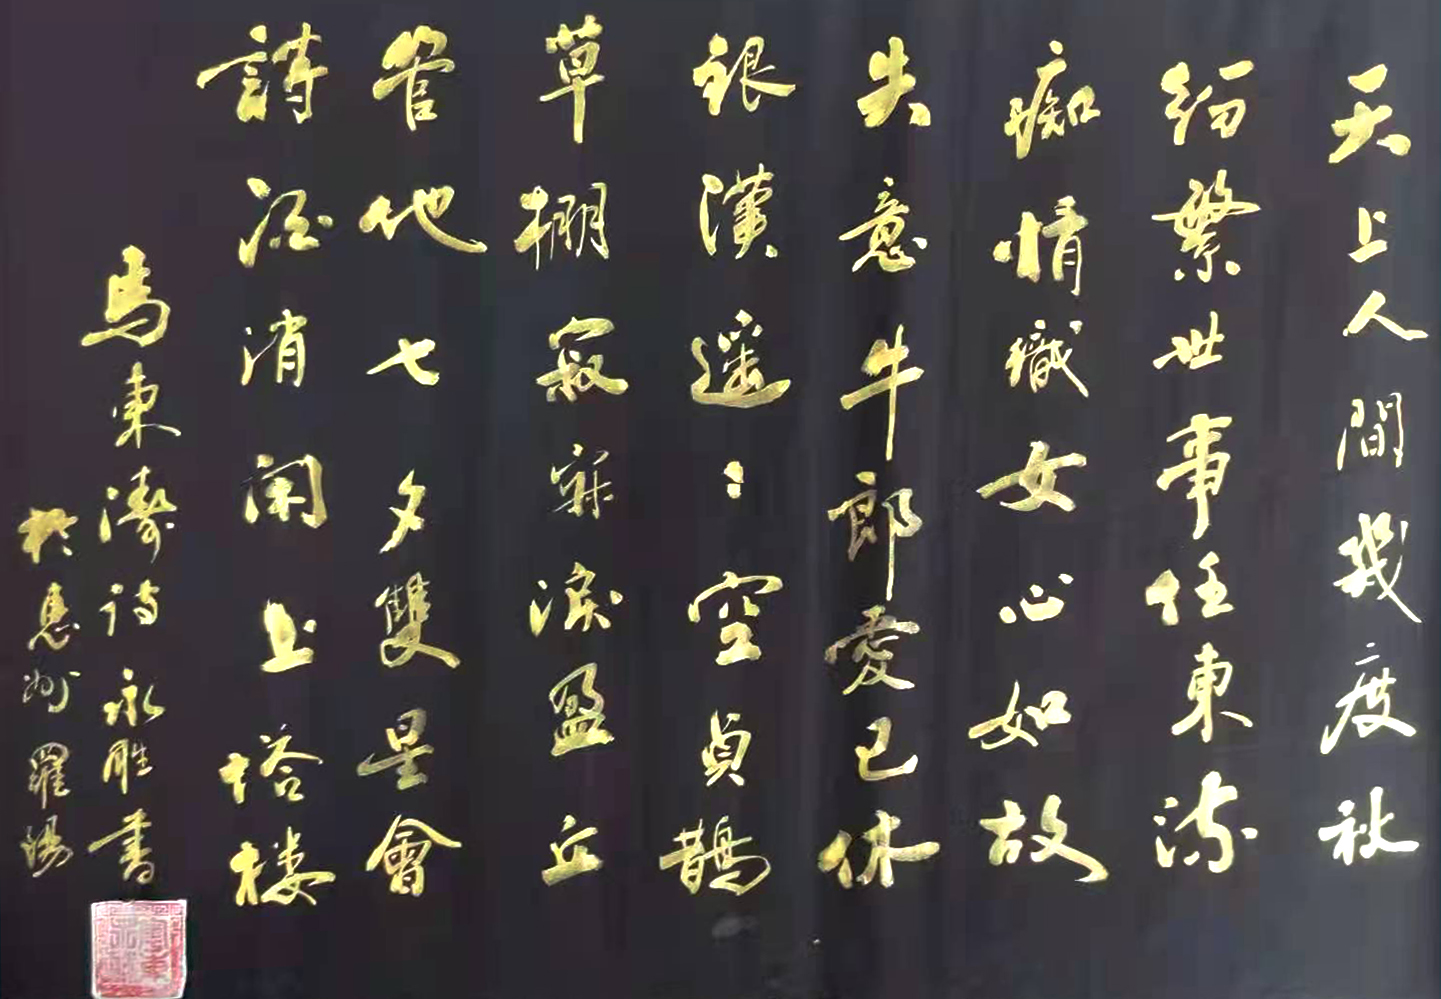 天上人間幾度秋
紛繁世事任東流
痴情織女心如故
失意牛郎愛已休
銀漢遥：空負鵲
草棚寂寞淚盈丘
管他七夕雙星會
詩酒消閑上塔楼
馬東濤诗永胜書
於惠州羅陽